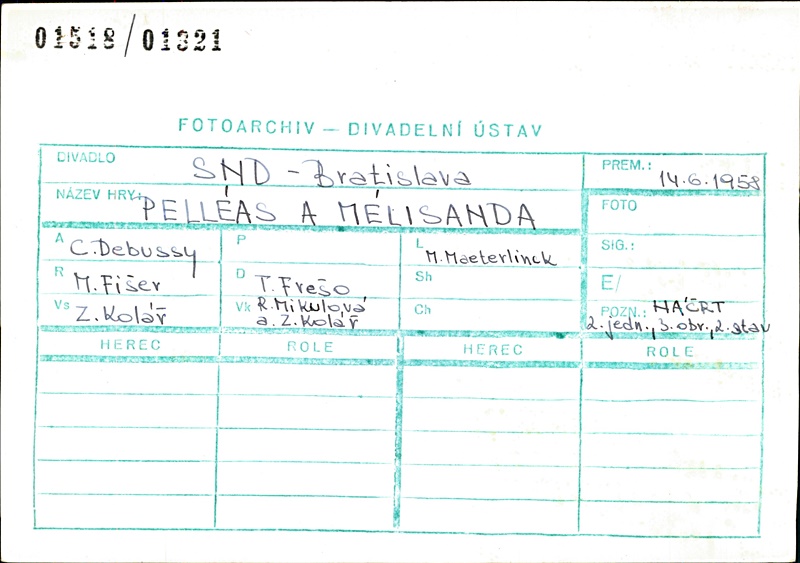 01518/01321
FOTOARCHIV – DIVADELNÍ ÚSTAV
DIVADLO SND - Bratislava
PREM.: 14.6.1958
NÁZEV HRY: PELLÉAS A MÉLISANDA
FOTO
A C. Debussy
P
L M. Maeterlinck
SIG.:
R M. Fišer
D T. Frešo
Sh
E/
Vs Z. Kolář
Vk R. Mikulová
a. Z. Kolář
Ch
POZN.: NÁČRT
2. jedn., 3. obr., 2. stav
HEREC ROLE HEREC ROLE